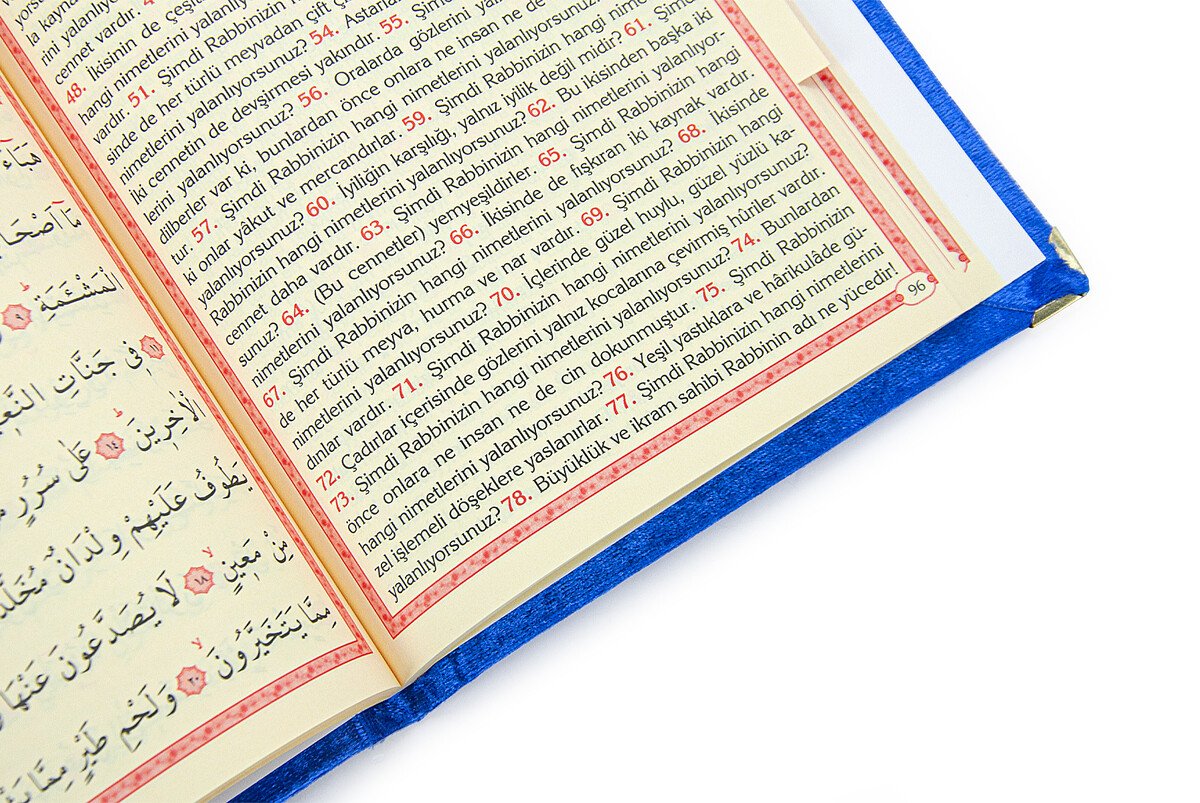 مَٓا اَصْحَا
الْمَشْـَٔمَةِ ٩
١١ فٖي جَنَّاتِ النَّعٖ
الْاٰخِرٖينَ ١٤ عَلٰى سُرُرٍ
يَطُوفُ عَلَيْهِمْ وِلْدَانٌ مُخَلَّدُ
مِنْ مَعٖينٍ ١٨ لَا يُصَدَّعُونَ عَنْهَا
مِمَّا يَتَخَيَّرُونَ ٢٠ وَلَحْمِ طَيْرٍ مِمَّا
la kayna
rini yalanlıyor
cennet vardır.
48. İkisinin de çeşi
hangi nimetlerini yalanlıyorsunuz
vardır. 51. Şimdi Rabbinizin
sinde de her türlü meyvadan çift
nimetlerini yalanlıyorsunuz? 54. Astarla
iki cennetin de devşirmesi yakındır. 55. Şim
lerini yalanlıyorsunuz? 56. Oralarda gözlerini yal
dilberler var ki, bunlardan önce onlara ne insan ne de
tur. 57. Şimdi Rabbinizin hangi nimetlerini yalanlıyorsunuz
ki onlar yâkut ve mercandırlar. 59. Şimdi Rabbinizin hangi nime
yalanlıyorsunuz? 60. İyiliğin karşılığı, yalnız iyilik değil midir? 61. Şimd
Rabbinizin hangi nimetlerini yalanlıyorsunuz? 62. Bu ikisinden başka iki
cennet daha vardır. 63. Şimdi Rabbinizin hangi nimetlerini yalanlıyor-
sunuz? 64. (Bu cennetler) yemyeşildirler. 65. Şimdi Rabbinizin hangi
nimetlerini yalanlıyorsunuz? 66. İkisinde de fışkıran iki kaynak vardır.
67. Şimdi Rabbinizin hangi nimetlerini yalanlıyorsunuz? 68. İkisinde
de her türlü meyva, hurma ve nar vardır. 69. Şimdi Rabbinizin hangi
nimetlerini yalanlıyorsunuz? 70. İçlerinde güzel huylu, güzel yüzlü ka-
dınlar vardır. 71. Şimdi Rabbinizin hangi nimetlerini yalanlıyorsunuz?
72. Çadırlar içerisinde gözlerini yalnız kocalarına çevirmiş hûriler vardır.
73. Şimdi Rabbinizin hangi nimetlerini yalanlıyorsunuz? 74. Bunlardan
önce onlara ne insan ne de cin dokunmuştur. 75. Şimdi Rabbinizin
hangi nimetlerini yalanlıyorsunuz? 76. Yeşil yastıklara ve hârikulâde gü-
zel işlemeli döşeklere yaslanırlar. 77. Şimdi Rabbinizin hangi nimetlerini
yalanlıyorsunuz? 78. Büyüklük ve ikram sahibi Rabbinin adı ne yücedir!
96